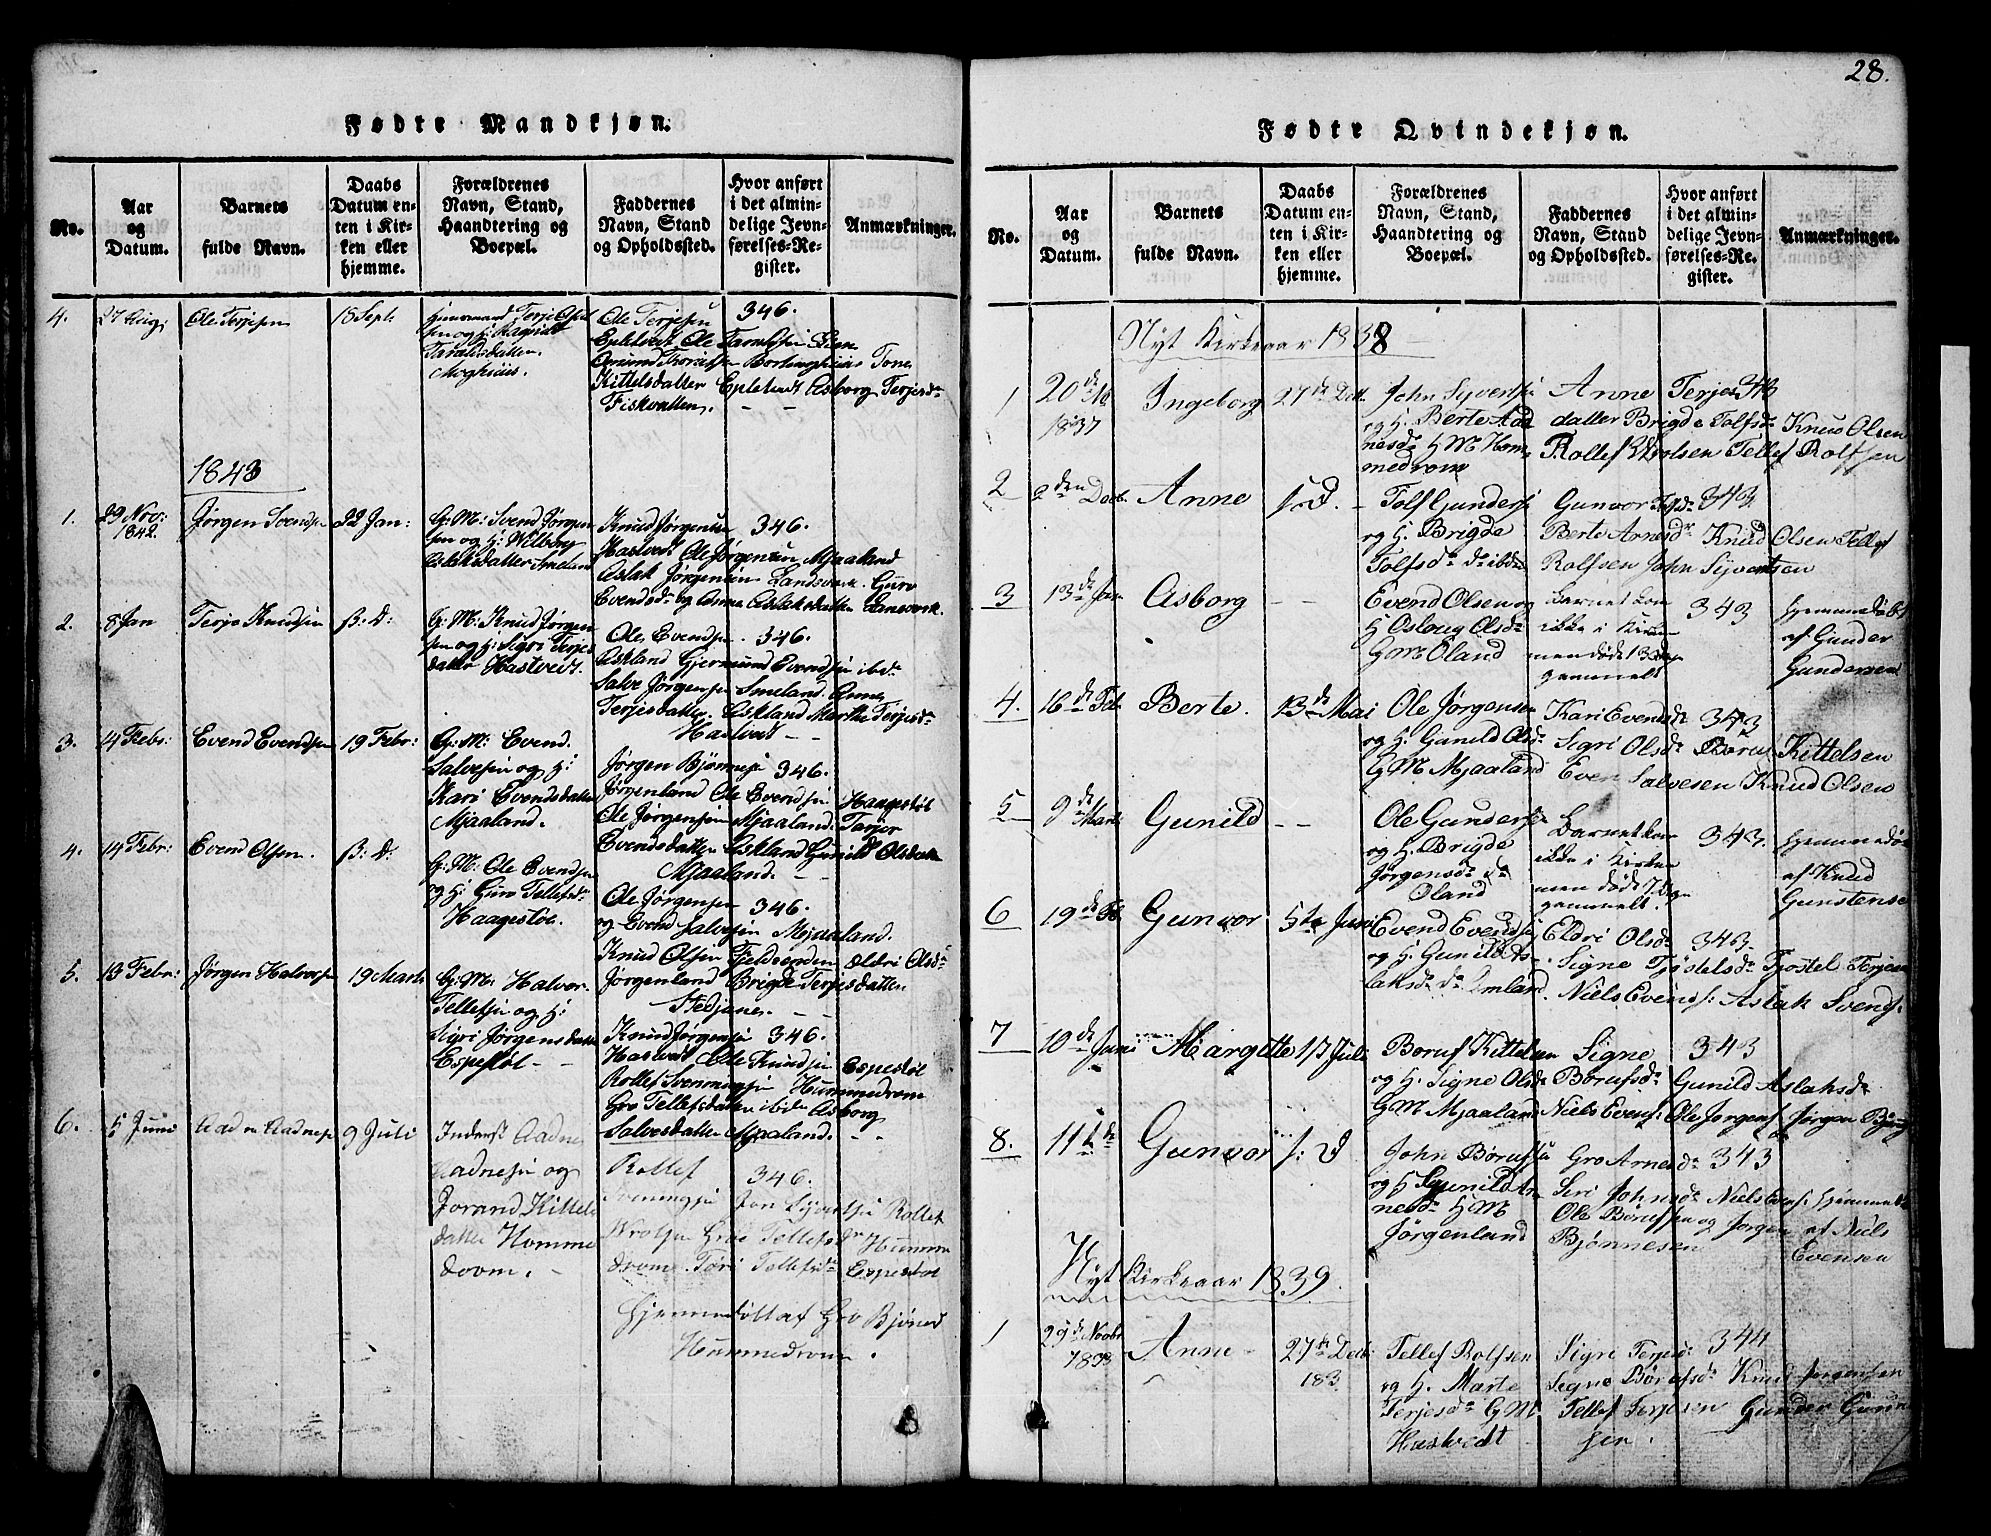 Fødte Mandkjøn.
No.
Aar og Datum.
Barnets fulde Navn.
Daabs Datum enten i Kirken eller hjemme.
Forældrenes Navn, Stand, Haandtering og Boepæl.
Faddernes Navn, Stand og Opholdssted.
Hvor anført i det almindelige Jevnførelses-Register.
Anmærkninger.
4. 27 Aug: Ole Terjesen 18 Sept:
Huusmand Terje
sen og h: Ragnild
Taraldsdatter.
Moghuus.
Ole Terjesen 346.
Epletvedt Ole Taraldsen Lien
Omund Thorsen Tone
Kittelsdatter Epletvedt Asborg Terjesdr
Fiskvatten.
1843
1. 29 Nov: 1842. Jørgen Svendsen 22 Jan:
G: M: Svend Jørgen
sen og h: Wilborg
Aslaksdatter Smeland
Knud Jørgensen 346.
Hastvedt Ole Jørgensen Mjaaland
Aslak Jørgensen Landsverk. Guro
Evendsdr og Anne Aslaksdatter Lansverk.
2. 8 Jan Terje Knudsen S: D:
G: M: Knud Jørgen
sen og h: Sigri Terjes
datter Hastvedt.
Ole Evendsen 346.
Askland Gjermund Evendsen ibdr
Salve Jørgensen Smeland. Anne
Terjesdatter. Askland Marthe Terjesdr
Hastvedt
3. 14 Febr: Evend Evendsen 19 Febr:
G: M: Evend
Salvesen og h:
Kari Evendsdatter
Mjaaland.
Jørgen Bjønnesen 346.
Jørgenland Ole Evendsen Haagestøl
Ole Jørgensen Mjaaland. Torjor
Evendsdatter Askland Gunild Olsdatter
Mjaaland.
4. 14 Febr: Evend Olsen. S: D:
G: M: Ole Evendsen
og h: Guro Tellefsdr
Haagestøl.
Ole Jørgensen 346.
og Evend Salvesen Mjaaland.
Knud Olsen Fieldvenden Eldri Olsdr
Jørgenland Brigde Terjesdatter
Stedjane.
5. 13 Febr: Jørgen Halvorsen 19 Marts
G: M: Halvor
Tellefsen og h:
Sigri Jørgensdatter
Espestøl
Knud Jørgensen 346.
Hastvedt Ole Knudsen Espestøl
Rollef Svenningsen Hummedrom
Gro Tellefsdatter ibidr Asborg
Salvesdatter Mjaaland.
6. 5 Juni Aadne Aadnesen 9 Juli
Inderst Aadne
Aadnesen og
Jorand Kittels
datter Homme
drom.
Rollef 346.
Svenningsen Jon Syvertsen Rollef
Wrolsen Groe Tellefsdr Humme
drom. Tori Tellefsdr Espestøl
Hjemmedøbt af Gro Bjøned
Hummedrom.
28.
Fødte Qvindekjøn.
No.
Aar og Datum.
Barnets fulde Navn.
Daabs Datum enten i Kirken eller hjemme.
Forældrenes Navn, Stand, Haandtering og Boepæl.
Faddernes Navn, Stand og Opholdssted.
Hvor anført i det almindelige Jevnførelses-Register.
Anmærkninger.
Nyt Kirkeaar 1838
1 20de 1837 Ingeborg 27de Dec
John Syvertsen
og h. Berte Aad
nesdr HM Hom
medrom
Anne Terjes 343
datter Brigde Tolfsdr Knud Olsen
Rollef Wrolsen Tellef Rolfsen
2 2den Decb. Anne s. D.
Tolf Gunders:
og h. Brigde
Tolfsdr do ibdr
Gunvor Tolfsdr 343
Berte Arnesdr Knud Olsen Tellef
Rolfsen John Syvertsen
3 13de Jan Asborg
Evend Olsen og
h Oslaug Olsdr
GM Øland
Barnet kom
ikke i Kirken
men døde 13 dage
gammelt
343
hjemmedøbt
af Gunder
Gundersen
4. 16de Feb Berte. 13de Mai
Ole Jørgensen
og h. Gunild Olsdr
GM Mjaaland
Kari Evendsdr 343
Sigri Olsdr Boruf Kittelsen
Even Salvesen Knud Olsen
5 9de Marts Gunild
Ole Gunders:
og h. Brigde
Jørgensdr do
Øland
Barnet kom
ikke i Kirken
men døde 7 dage
gammelt.
343.
hjemmedøbt
af Knud
Gunstensen
6 19de Feb Gunvor 5te Juni
Evend Evends:
og h. Gunild As
laksdr do Omland.
Eldri Olsdr 343.
Signe Tjøstelsdr Tjostel Terjesen
Niels Evends: Aslak Svends:
7 10de Juni Margette 1/7 Juli
Boruf Kittelsen
og h. Signe Olsdr
GM Mjaaland
Signe 343
Børufsdr Gunild Aslaksdr
Niels Evens: Ole Jørgens: Jørgen
8. 11te Gunvor s: D
John Børufsen
og h Gunild Ar
nesdr HM
Jørgenland
Gro Arnesdr 343
Siri Johnsdr Niels Evens: hjemmedøbt
Ole Børufsen og Jørgen af Niels
Bjønnesen Evensen
Nyt Kirkeaar 1839.
1 29de Novbr 1838 Anne 27de Decb: 183
Tellef Rolfsen
og h. Marte
Terjesdr GM
Hastvedt
Sigri Terjesdr 344
Segne Børufsdr Knud Jørgensen
Tellef Terjesen Gunder Gunn
sen.